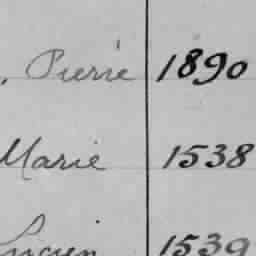 , Pierre 1890
Marie 1538
Lucien 1539